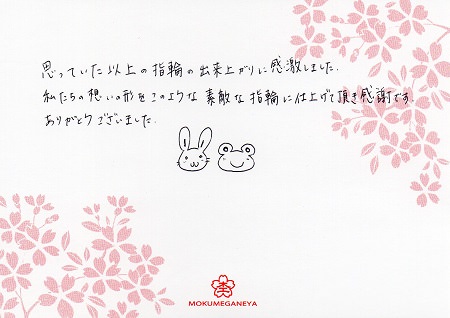 思っていた以上の指輪の出来上がりに感激しました.
私たちの想いの形をこのような素敵な指輪に仕上げて頂き感謝です.
ありがとうございました.
MOKUMEGANEYA